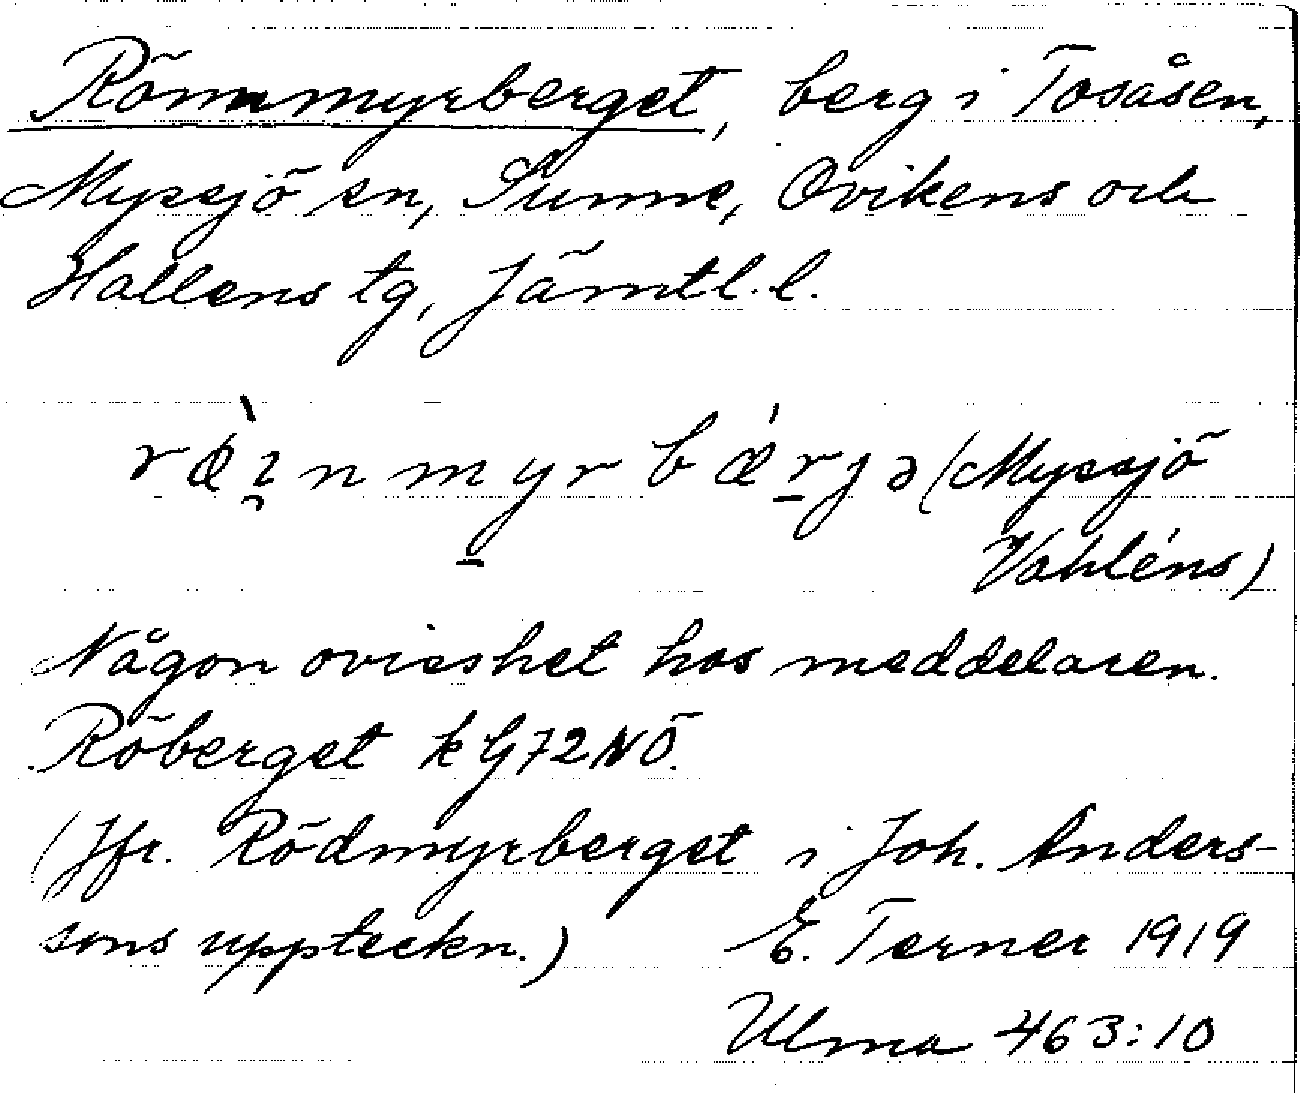 Römmmyrberget, berg i Tosåsen,
Myssjö sn, Sunne, Ovikens och
Hallens tg, Jämtl. l.
ræ̀i̯nmyrbǽrjə (Myssjö
Vahléns)
Någon ovisshet hos meddelaren.
Röberget k G72NÖ.
(Jfr. Rödmyrberget i Joh. Anders-
sons uppteckn.) E. Terner 1919
Ulma 463:10